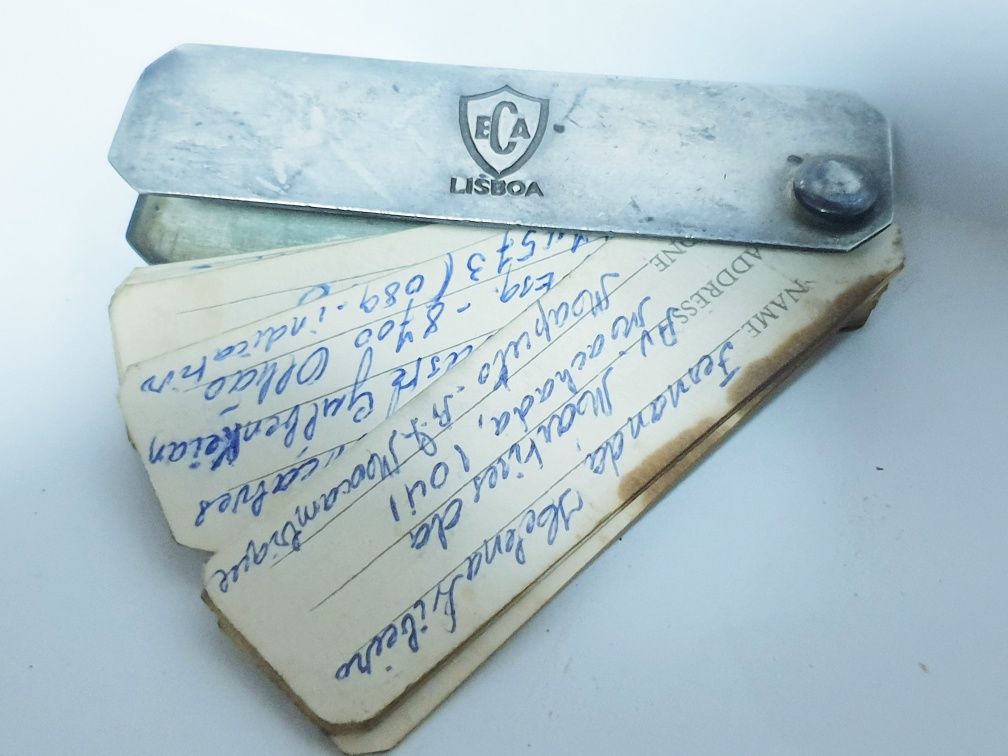 ECA
LISBOA
NAME Fernanda Helena Ribeiro
ADDRESS Av. Martires da
machada,
ONE Maputo. R.P. Mocambique
calves
Gulbenkian
Esq. - 8700 Olhão
573 (089-indicativo